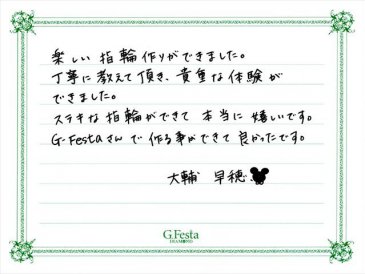 楽しい指輪作りができました。
丁寧に教えて頂き、貴重な体験が
できました。
ステキな指輪ができて本当に嬉しいです。
G-Festaさんで作る事ができて良かったです。
大輔 早穂
G.Festa
DIAMOND